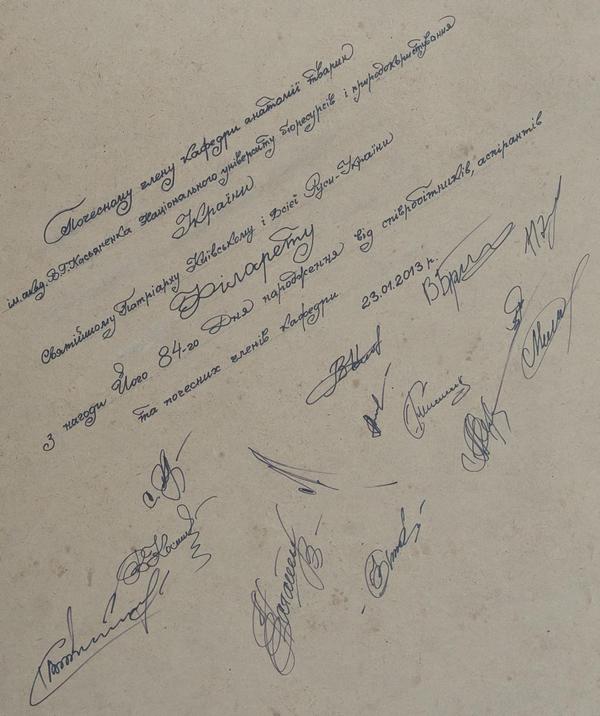 Почесному члену кафедри анатомії тварин
ім. акад. В.Г. Касьяненка Національного університету біоресурсів і природокористування
України
Святійшому Патріарху Київському і Всієї Руси-України
Філарету
З нагоди Його 84-го Дня народження від співробітників, аспірантів
та почесних членів кафедри 23.01.2013 р.